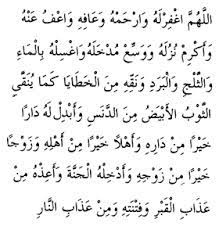 اللَّهُمَّ اغْفِرْ لَهُ وَارْحَمْهُ وَعَافِهِ وَاعْفُ عَنْهُ
وَأَكْرِمْ نُزُلَهُ وَوَسِّعْ مُدْخَلَهُ وَاغْسِلْهُ بِالْمَاءِ
وَالثَّلْجِ وَالْبَرَدِ وَنَقِّهِ مِنَ الْخَطَايَا كَمَا يُنَقَّى
الثَّوْبُ الْأَبْيَضُ مِنَ الدَّنَسِ وَأَبْدِلْ لَهُ دَارًا
خَيْرًا مِنْ دَارِهِ وَأَهْلًا خَيْرًا مِنْ أَهْلِهِ وَزَوْجًا
خَيْرًا مِنْ زَوْجِهِ وَأَدْخِلْهُ الْجَنَّةَ وَأَعِذْهُ مِنْ
عَذَابِ الْقَبْرِ وَفِتْنَتِهِ وَمِنْ عَذَابِ النَّارِ